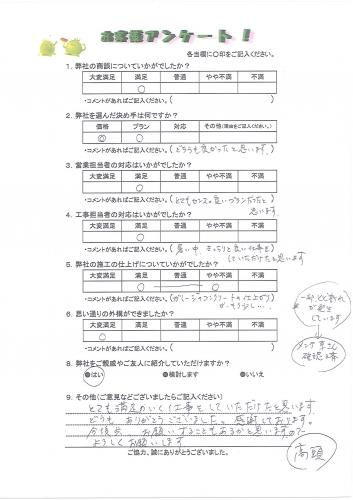 お客様アンケート！
各当欄に○印をご記入ください。
1．弊社の商談についていかがでしたか？
大変満足 満足 普通 やや不満 不満
○
・コメントがあればご記入ください。（ ）
2．弊社を選んだ決め手は何ですか？
価格 プラン 対応 その他（理由をご記入ください。）
◎ ○
・コメントがあればご記入ください。（どちらも良かったと思います。）
3．営業担当者の対応はいかがでしたか？
大変満足 満足 普通 やや不満 不満
○
・コメントがあればご記入ください。（とてもセンスの良いプランだったと
思います。）
4．工事担当者の対応はいかがでしたか？
大変満足 満足 普通 やや不満 不満
○
・コメントがあればご記入ください。（暑い中 きっちりと良い仕事を
していただけたと思います）
5．弊社の施工の仕上げについていかがでしたか？
大変満足 満足 普通 やや不満 不満
○ ○
・コメントがあればご記入ください。（ガレージコンクリートの仕上がり
がもう少し…）
6．思い通りの外構ができましたか？
大変満足 満足 普通 やや不満 不満
○
8．弊社をご親戚やご友人に紹介していただけますか？
●はい ●検討します ●いいえ
9．その他（ご意見などございましたらご記入ください）
とても満足のいく仕事をしていただけたと思います。
どうもありがとうございました。感謝しております。
今後共、お願いすることもあるかと思いますので
よろしくお願いします
ご協力、誠にありがとうございました。
一部ひび割れ
が発生
しています
確認済
高頭